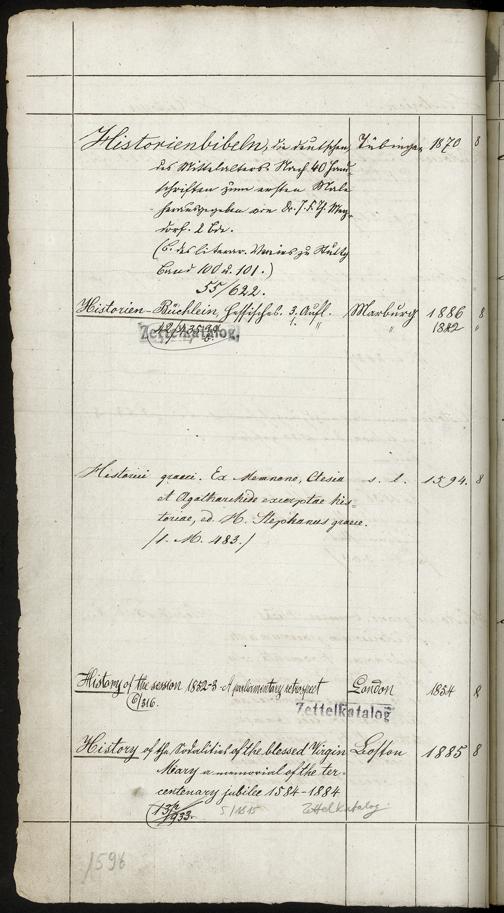 Historienbibeln, die deutschen Tübingen 1870 8
des Mittelalters. Nach 40 Hand-
schriften zum ersten Male
herausgegeben von Dr. J. F. Th. Merz-
dorf. 2 Bde.
(B. des literar. Vereins zu Stuttg.
Band 100 u. 101.)
55/622.
Historien-Büchlein, Hessisches. 3. Aufl. Marburg 1886 8
1. " " 1842 "
Zettelkatalog
Historici graeci. Ex Memnone, Ctesia s. l. 1594. 8
et Agatharchide excerptae his-
toriae, ed. H. Stephanus graece.
/s. M. 483./
History of the session 1852-3 A parliamentary retrospect London 1854 8
6/316.
Zettelkatalog
History of the Sodalities of the blessed Virgin Boston 1885 8
Mary a memorial of the ter-
centenary jubilee 1584-1884
5/1815 Zettelkatalog
1596